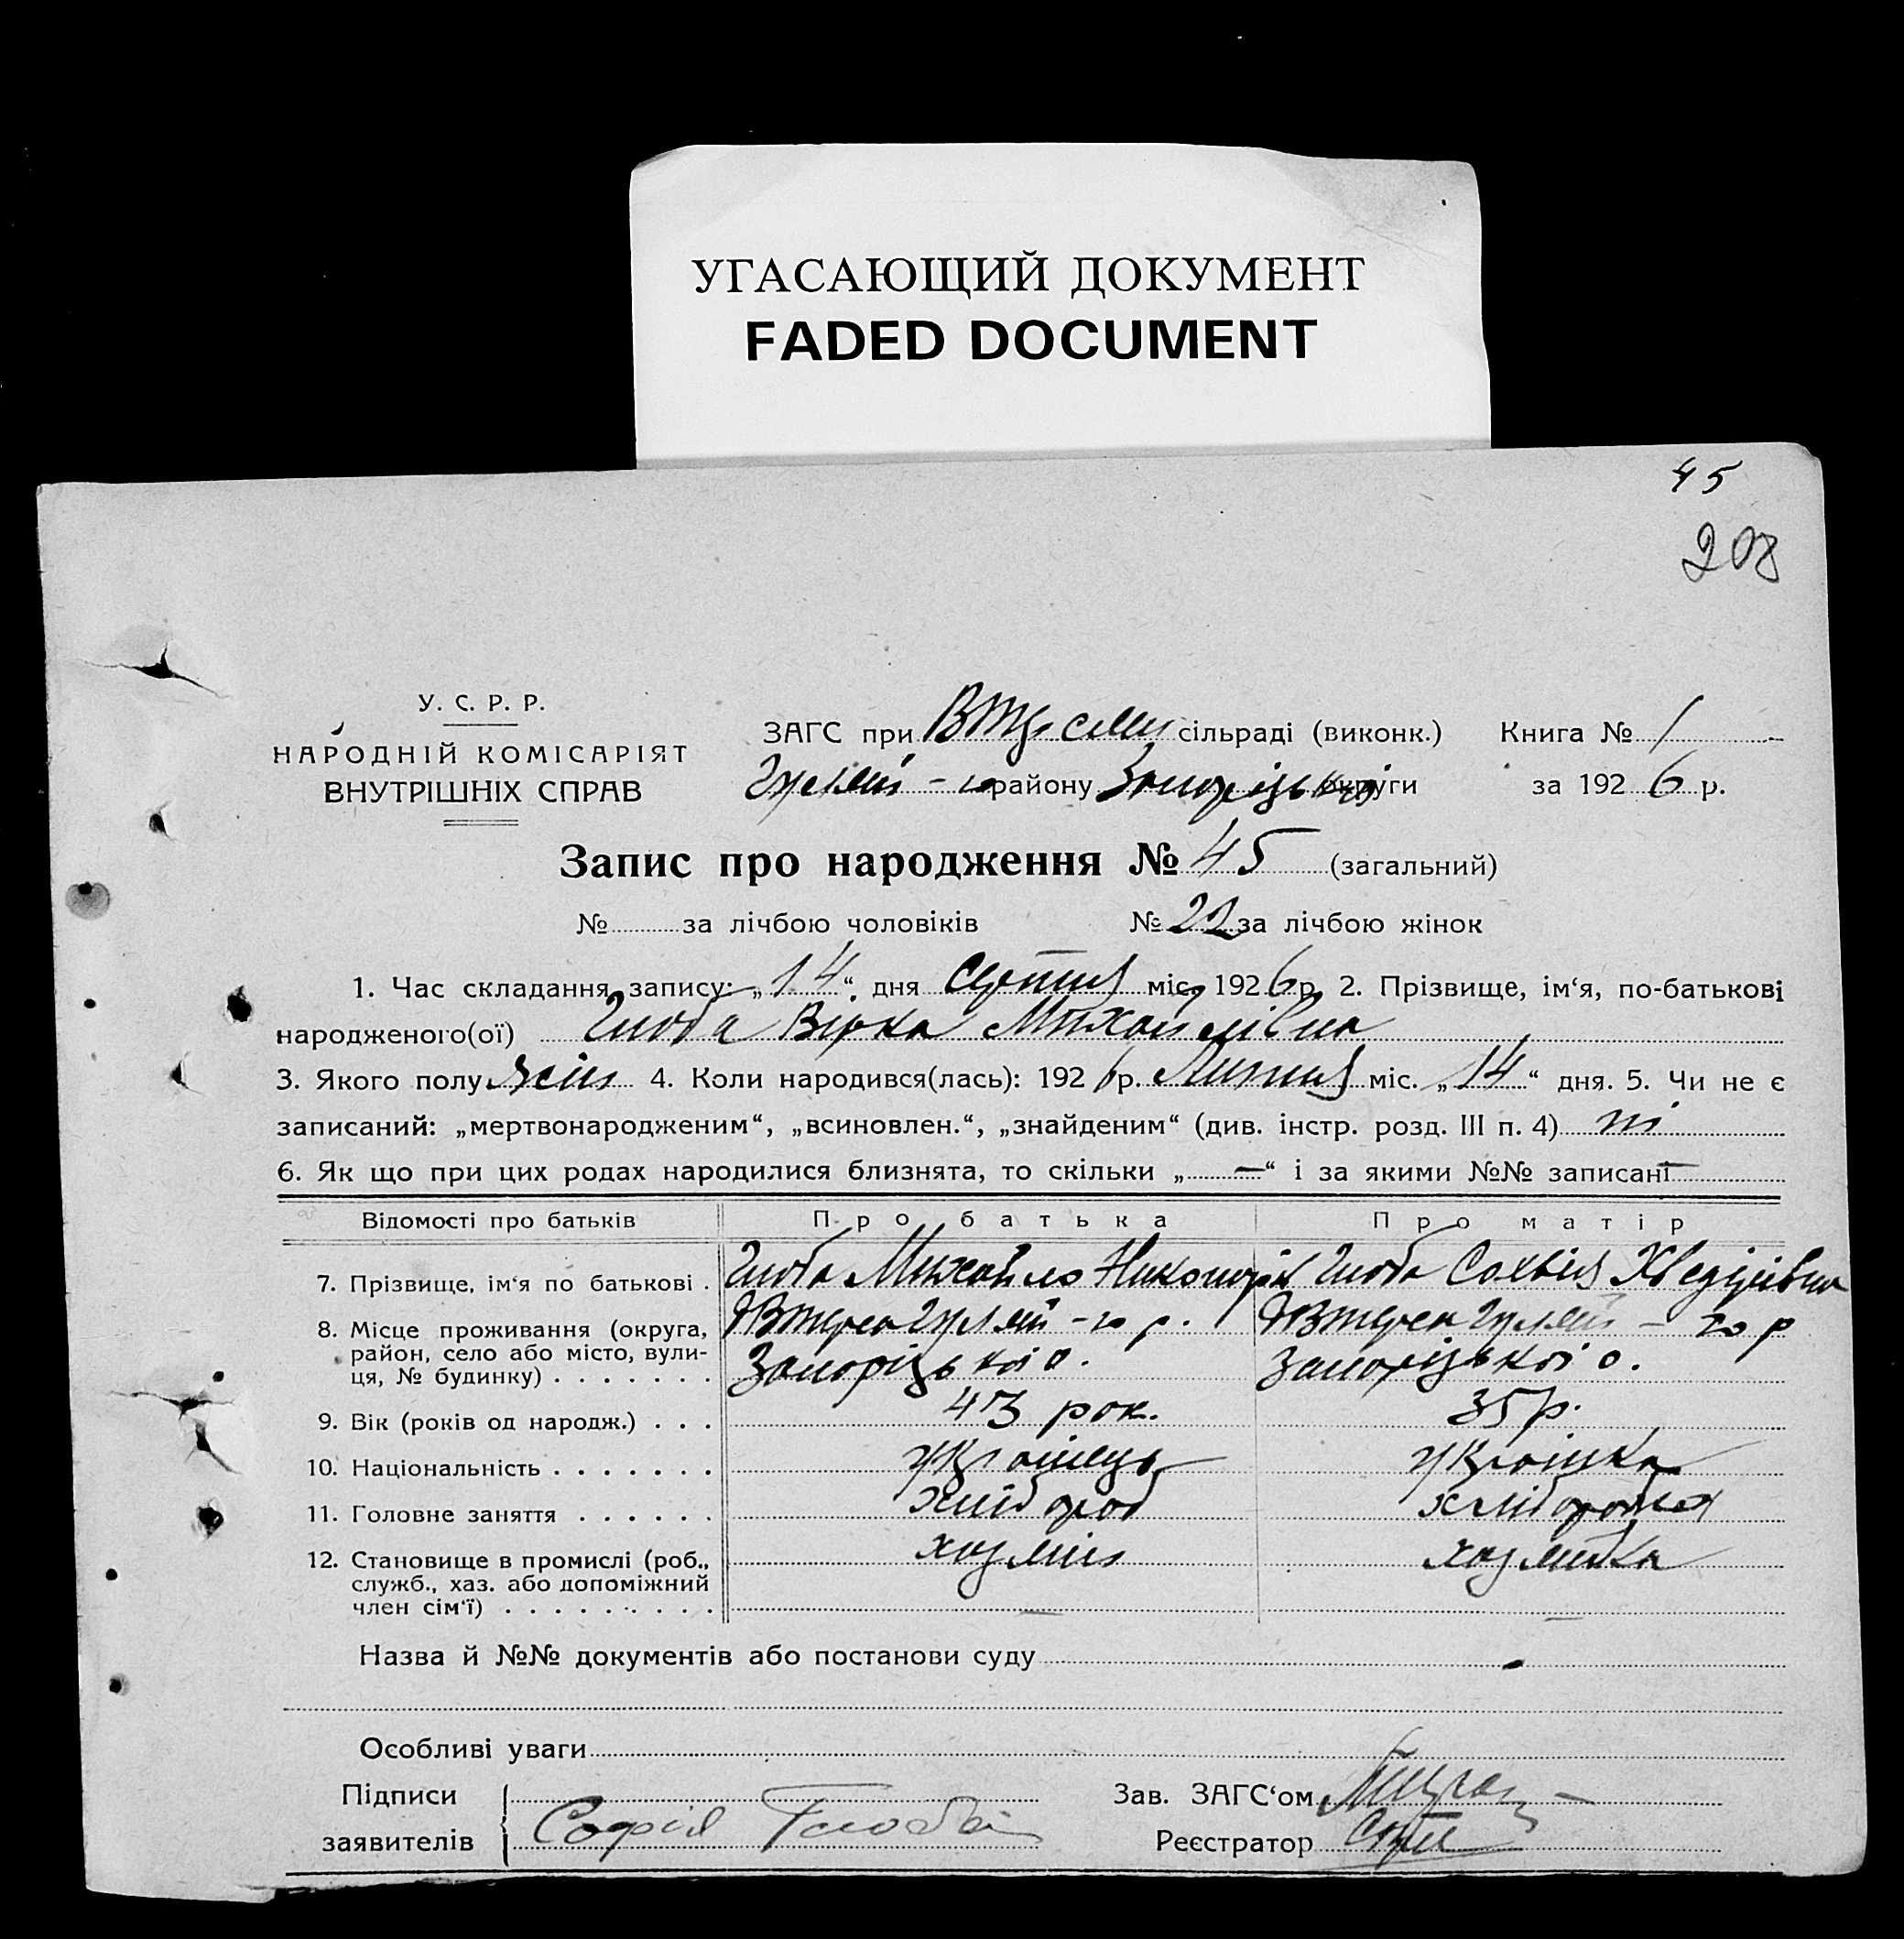 УГАСАЮЩИЙ ДОКУМЕНТ
FADED DOCUMENT
45
208
У. С. Р. Р.
НАРОДНІЙ КОМІСАРІЯТ
ВНУТРІШНІХ СПРАВ
ЗАГС при сільраді (виконк.) Книга № 1
району Запоріцької округи за 1926 р.
Запис про народження № 45 (загальний)
№ за лічбою чоловіків № 22 за лічбою жінок
1. Час складання запису: „14“ дня серпня міс. 1926 р. 2. Прізвище, ім‘я, по-батькові
народженого(ої) Глоба Вірка Михайлівна
3. Якого полу жін 4. Коли народився(лась): 1926 р. Липня міс. „14“ дня. 5. Чи не є
записаний: „мертвонародженим“, „всиновлен.“, „знайденим“ (див. інстр. розд. III п. 4) ні
6. Як що при цих родах народилися близнята, то скільки „—“ і за якими №№ записані —
Відомості про батьків Про батька Про матір
7. Прізвище, ім‘я по батькові . Глоба Михайло Никопорів Глоба Сохвія Хведорівна
8. Місце проживання (округа, Гуляй-го р. Гуляй-го р
район, село або місто, вули- Запоріцької о. Запоріцької о.
ця, № будинку) . . . . . . .
9. Вік (років од народж.) . . . 43 рок. 35 р.
10. Національність . . . . . . . українець українка
11. Головне заняття . . . . . . хлібороб хліборобка
12. Становище в промислі (роб., хазяїн хазяйка
служб., хаз. або допоміжний
член сім‘ї) . . . . . . . . . — —
Назва й №№ документів або постанови суду -
Особливі уваги
Підписи Зав. ЗАГС‘ом
заявителів Софія Глоба Реєстратор